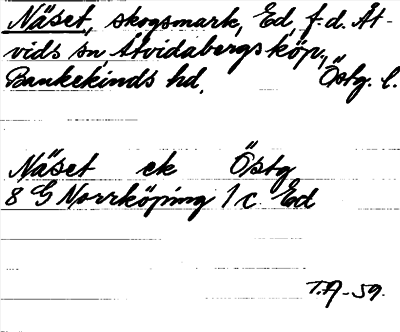 Näset, skogsmark, Ed, f.d. Åt-
vids sn, Åtvidabergs köp.,
Bankekinds hd, Östg. l.
Näset ek Östg
8 G Norrköping 1 c Ed
T.A-59.